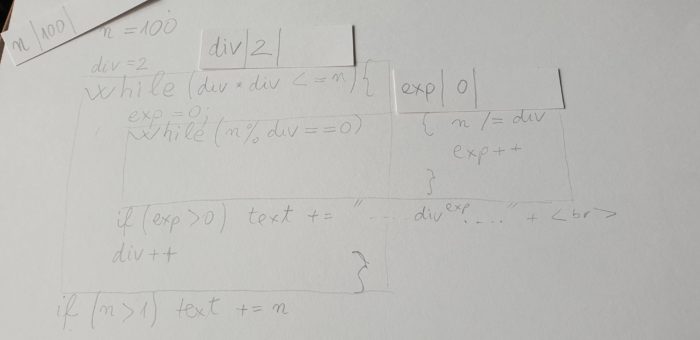 n | 100 |
n = 100
div | 2 |
div = 2
while (div * div <= n) {
exp | 0 |
exp = 0;
while (n % div == 0) { n /= div
exp++
}
if (exp > 0) text += "..... div^exp ....." + <br>
div++
}
if (n > 1) text += n